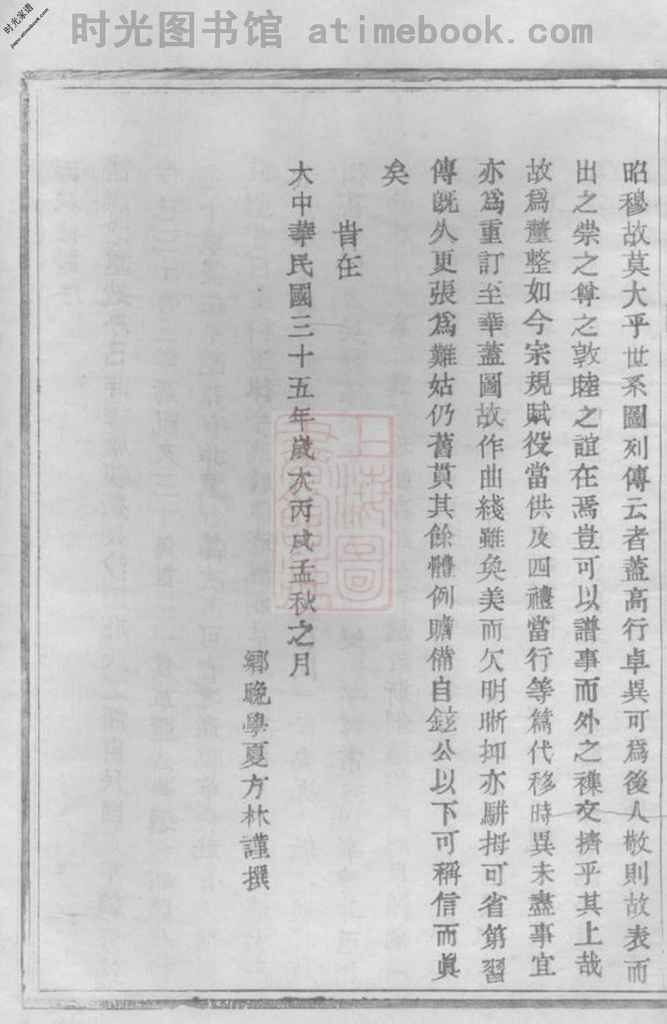 时光图书馆 atimebook.com
时光家谱
jiapu.atimebook.com
昭穆故莫大乎世系圖列傳云者蓋高行卓異可爲後人敬則故表而
出之崇之尊之敦睦之誼在焉豈可以譜事而外之襍文擠乎其上哉
故爲釐整如今宗規賦役當供及四禮當行等篇代移時異未盡事宜
亦爲重訂至華蓋圖故作曲綫雖奐美而欠明晰抑亦駢拇可省第習
傳旣久更張爲難姑仍舊貫其餘體例贍備自鉉公以下可稱信而眞
矣
旹在
大中華民國三十五年歲次丙戌孟秋之月
鄉晚學夏方林謹撰
上海圖